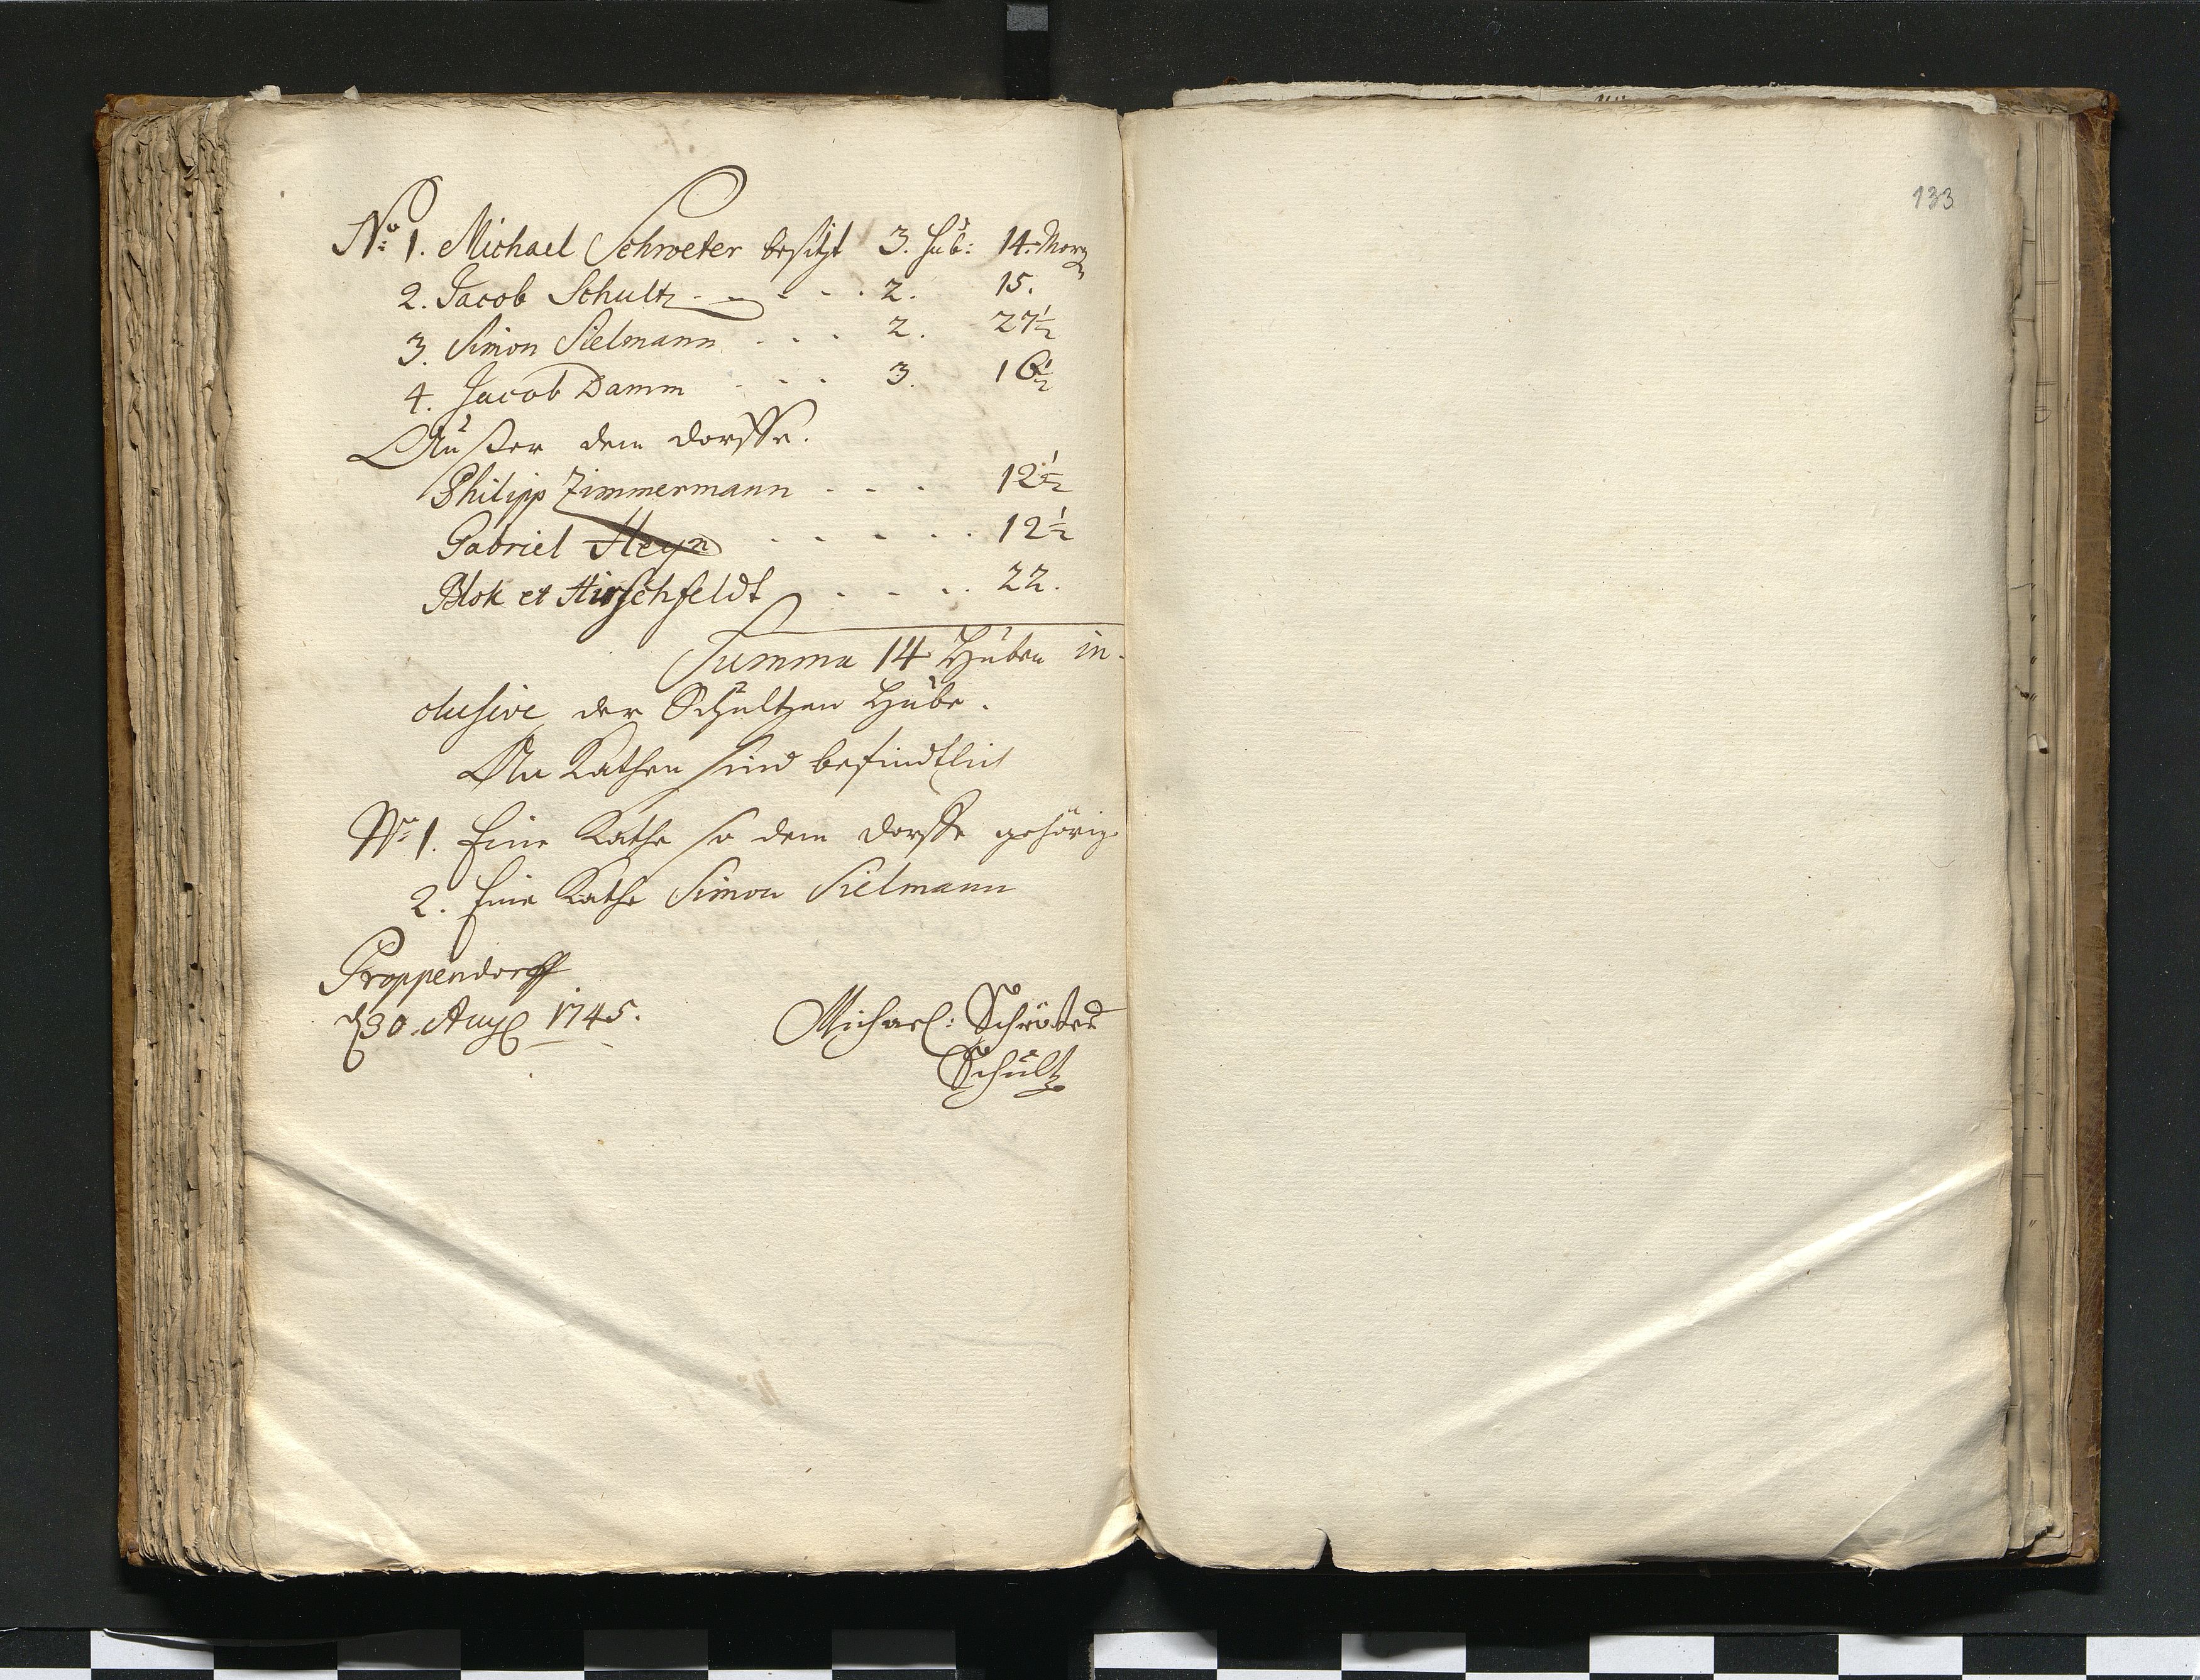 133
No: 1. Michael Schroeter besitzt 3. Hub: 14. Morg
2. Jacob Schultz - - - - . 2. 15.
3. Simon Sielmann . . . 2. 27½
4. Jacob Damm . . . 3. 16½
Außer dem Dorffe.
Philipp Zimmermann . . . 12½
Gabriel Heyn . . . . . . 12½
Blok et Hirschfeldt . . . . 22.
Summa 14 Huben in-
clusive der Schultzen Hube.
An Kathen sind befindtlich
No: 1. Eine Kathe so dem Dorffe gehörig.
2. Eine Kathe Simon Sielmann
Proppendorff
d 30. Aug 1745.
Michael: Schröter
Schultz